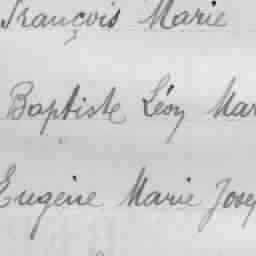 François Marie
Baptiste Léon Mar
Eugène Marie Josep